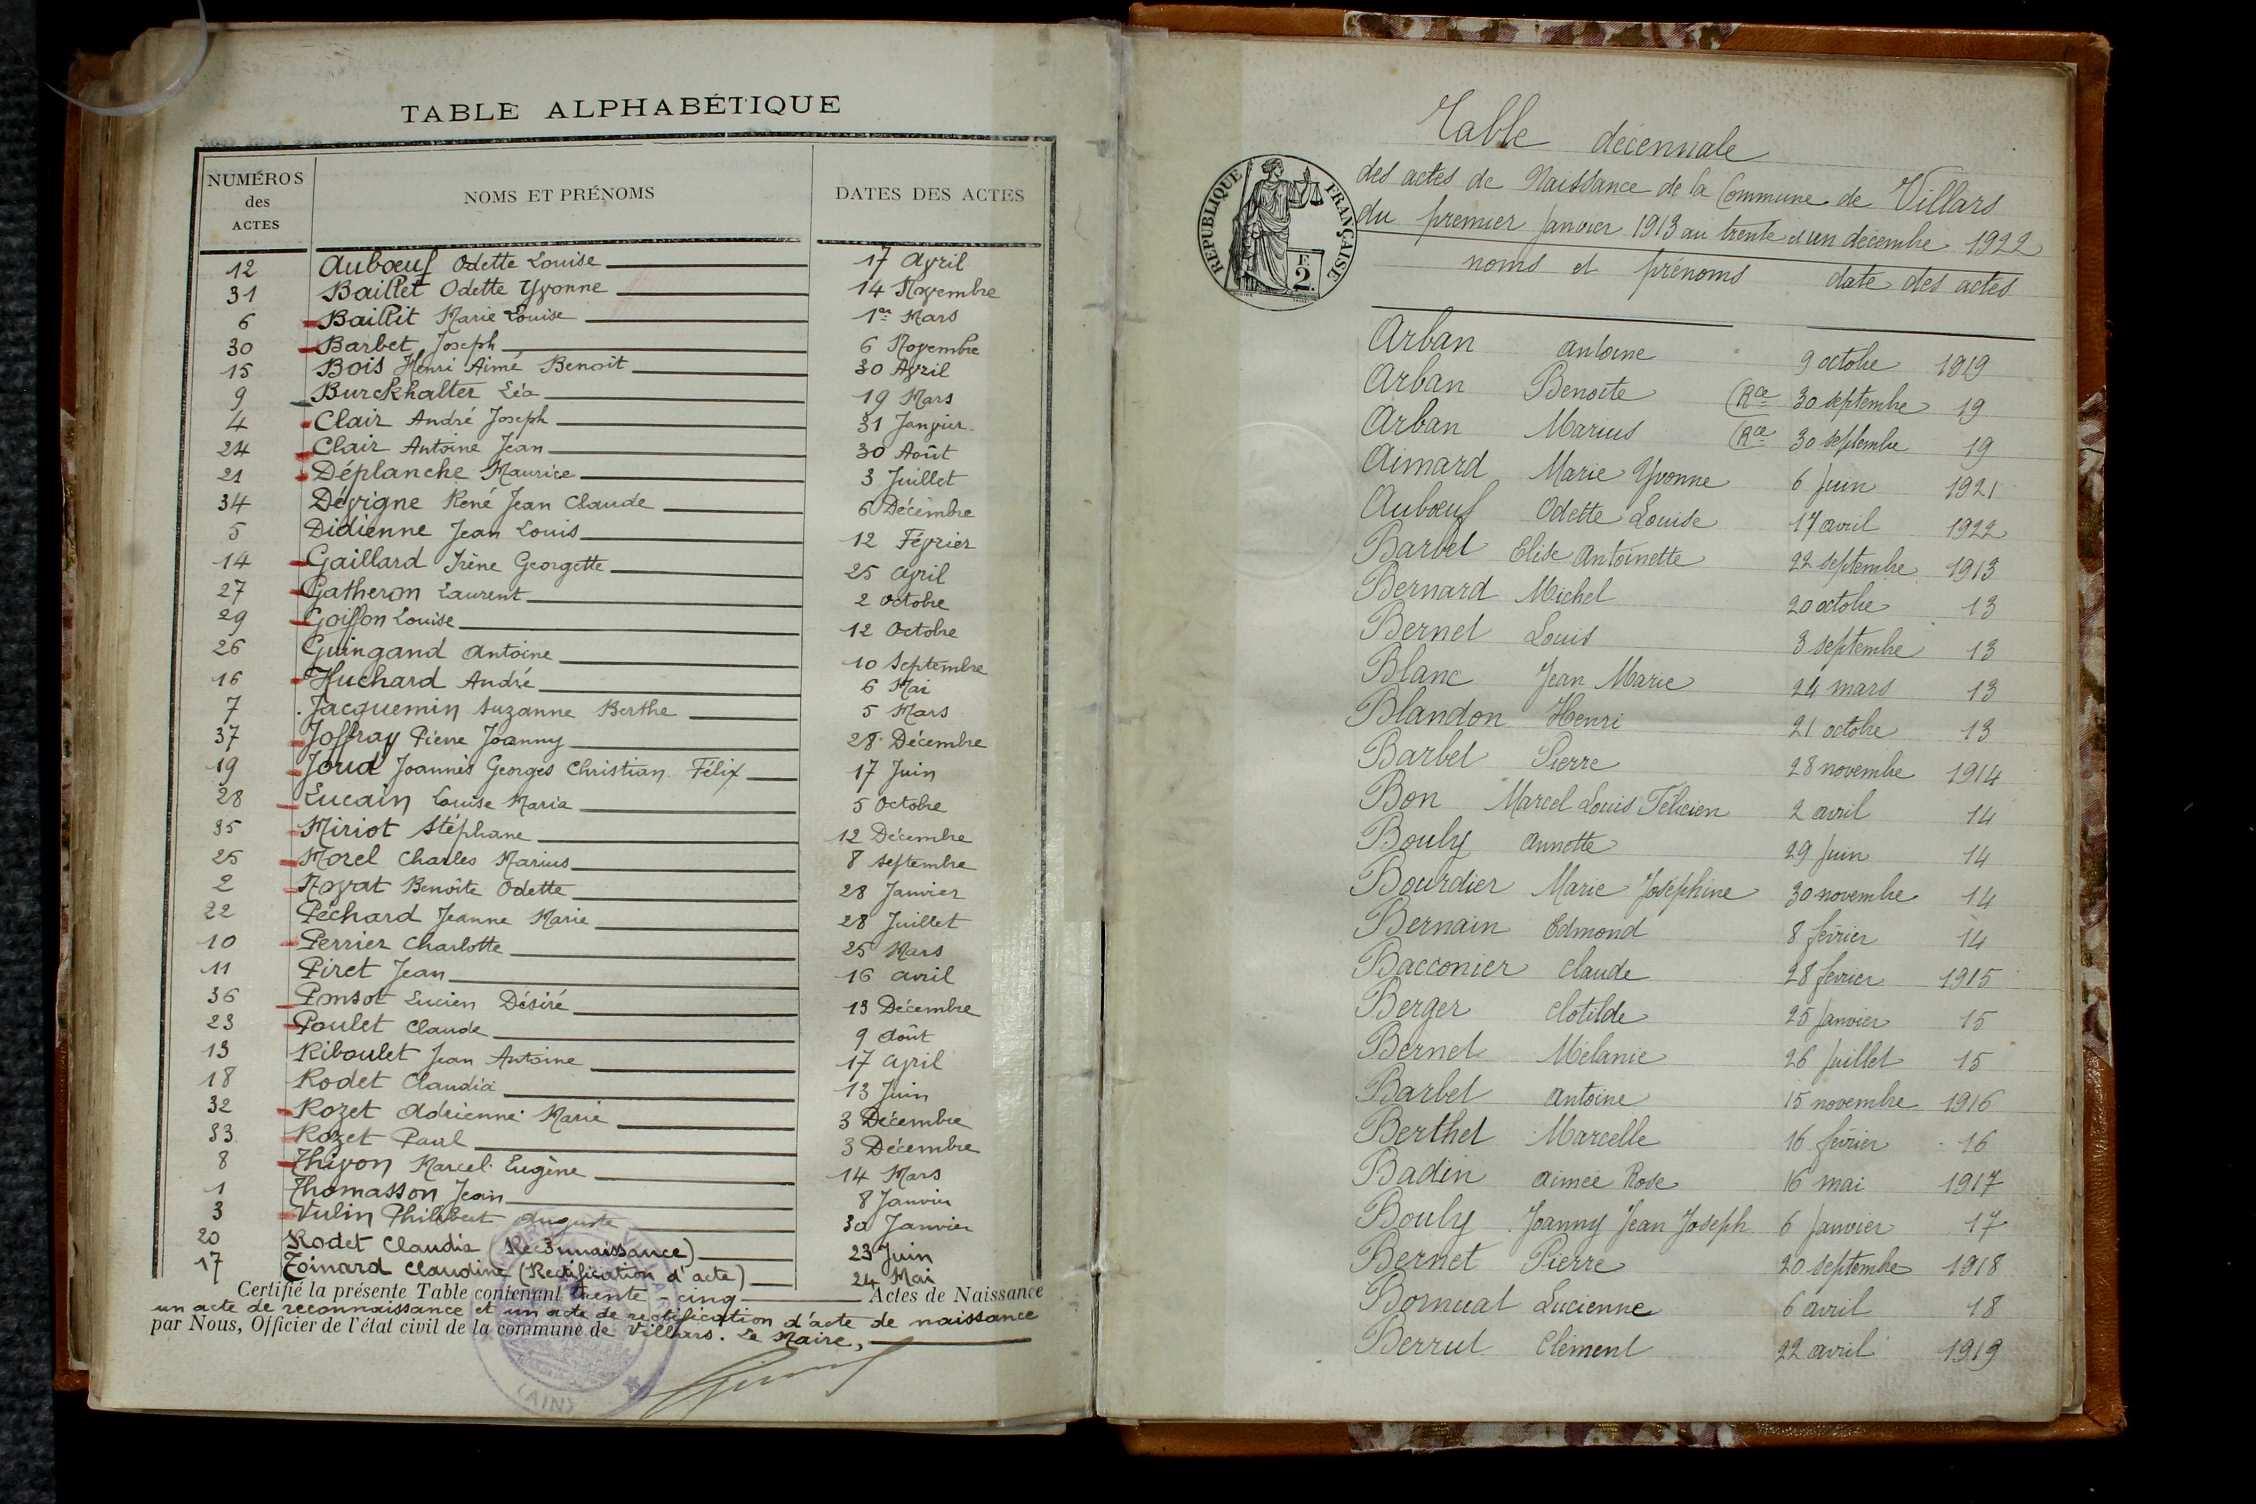 TABLE ALPHABÉTIQUE
NUMÉROS des ACTES NOMS ET PRÉNOMS DATES DES ACTES
12 Auboeuf Odette Louise 17 Avril
31 Baillet Odette Yvonne 14 Novembre
6 Baillit Marie Louise 1er Mars
30 Barbet Joseph 6 Novembre
15 Bois Henri Aimé Benoit 30 Avril
9 Burckhalter Léa 19 Mars
4 Clair André Joseph 31 Janvier
24 Clair Antoine Jean 30 Août
21 Déplanche Maurice 3 Juillet
34 Dévigne René Jean Claude 6 Décembre
5 Didienne Jean Louis 12 Février
14 Gaillard Irène Georgette 25 Avril
27 Gatheron Laurent 2 Octobre
29 Goiffon Louise 12 Octobre
26 Guingand Antoine 10 Septembre
16 Huchard André 6 Mai
7 Jacquemin Suzanne Berthe 5 Mars
37 Joffray Pierre Joanny 28 Décembre
19 Joud Joannès Georges Christian Félix 17 Juin
28 Lucain Louise Maria 5 Octobre
35 Miriot Stéphane 12 Décembre
25 Morel Charles Marius 8 Septembre
2 Noyrat Benoîte Odette 28 Janvier
22 Péchard Jeanne Marie 28 Juillet
10 Perrier Charlotte 25 Mars
11 Piret Jean 16 Avril
36 Ponsot Lucien Désiré 13 Décembre
23 Poulet Claude 9 Août
13 Riboulet Jean Antoine 17 Avril
18 Rodet Claudia 13 Juin
32 Rozet Adrienne Marie 3 Décembre
33 Rozet Paul 3 Décembre
8 Thivon Marcel Eugène 14 Mars
1 Thomasson Jean 8 Janvier
3 Vulin Philibert Auguste 30 Janvier
20 Rodet Claudia (Reconnaissance) 23 Juin
17 Toinard Claudine (Rectification d'acte) 24 Mai
Certifié la présente Table contenant trente-cinq Actes de Naissance
un acte de reconnaissance et un acte de rectification d'acte de naissance
par Nous, Officier de l'état civil de la commune de Villars. Le Maire,
(AIN)
Table décennale
des actes de Naissance de la Commune de Villars
du premier Janvier 1913 au trente et un décembre 1922
RÉPUBLIQUE FRANÇAISE
F. 2.
noms et prénoms date des actes
Arban Antoine 9 octobre 1919
Arban Benoîte (Rce 30 septembre 19
Arban Marius (Rce 30 septembre 19
Aimard Marie Yvonne 6 Juin 1921
Auboeuf Odette Louise 17 avril 1922
Barbet Elise Antoinette 22 septembre 1913
Bernard Michel 20 octobre 13
Bernet Louis 3 septembre 13
Blanc Jean Marie 24 mars 13
Blandon Henri 21 octobre 13
Barbet Pierre 28 novembre 1914
Bon Marcel Louis Félicien 2 avril 14
Bouly Annette 29 Juin 14
Bourdier Marie Joséphine 30 novembre 14
Bernain Edmond 8 février 14
Bacconier Claude 28 février 1915
Berger Clotilde 25 Janvier 15
Bernet Mélanie 26 Juillet 15
Barbet Antoine 15 novembre 1916
Berthet Marcelle 16 février 16
Badin Aimée Rose 16 mai 1917
Bouly Joanny Jean Joseph 6 Janvier 17
Bernet Pierre 20 septembre 1918
Bornuat Lucienne 6 avril 18
Berrut Clément 22 avril 1919